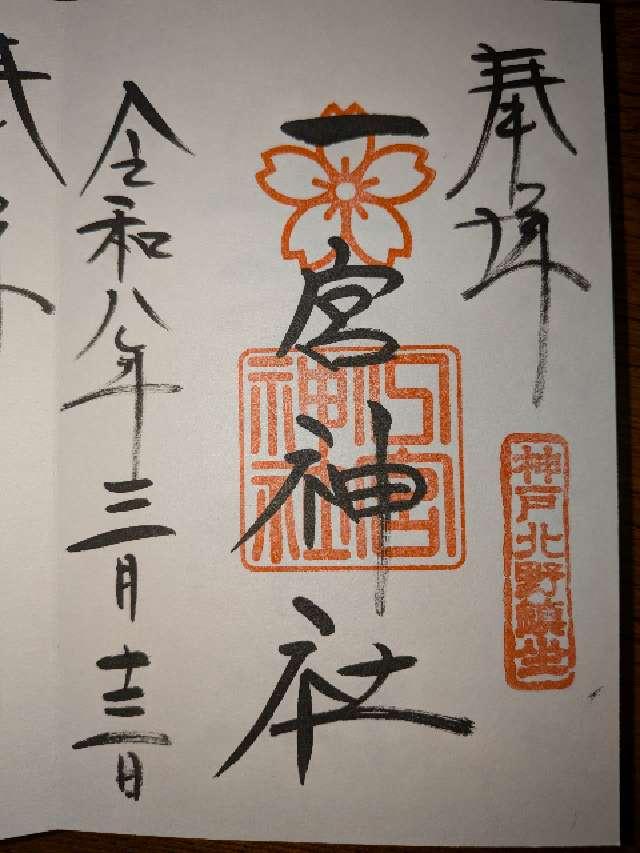 奉拝
神戸北野鎮坐
一宮神社
宮
神社
令和八年三月十三日